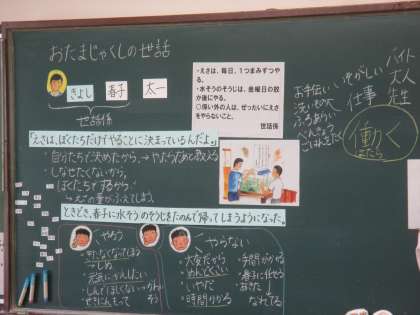 おたまじゃくしの世話
きよし
春子
太一
世話係
・えさは、毎日、1つまみずつやる。
・水そうのそうじは、金曜日の放か後にやる。
◎係い外の人は、ぜったいにえさをやらないこと。
世話係
お手伝い
洗いもの
べんきょう
いそがしい
仕事
バイト
大人
先生
働く
「えさは、ぼくたちだけでやることに決まっているんだよ。」
・自分たちで決めたから、
しなせたくないから、
ぼくたちでするから
ときどき、春子に水そうのそうじをたのんで帰ってしまうようになった。
やろう
元気に
しんでほしくない
せきにんもって
やらない
・大変だから
・めんどくさい
・いやだ
・時間かかる
・手間がかかる
・春子に任せる
・あきた
なれてる